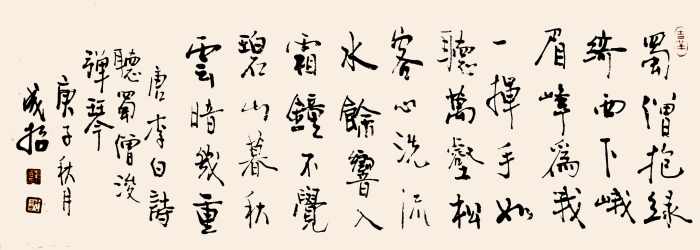 蜀僧抱綠
綺西下峨
眉峰爲我
一揮手如
聽萬壑松
客心洗流
水餘響入
霜鐘不覺
碧山暮秋
雲暗幾重
唐李白詩
聽蜀僧浚
彈琴
庚子秋月